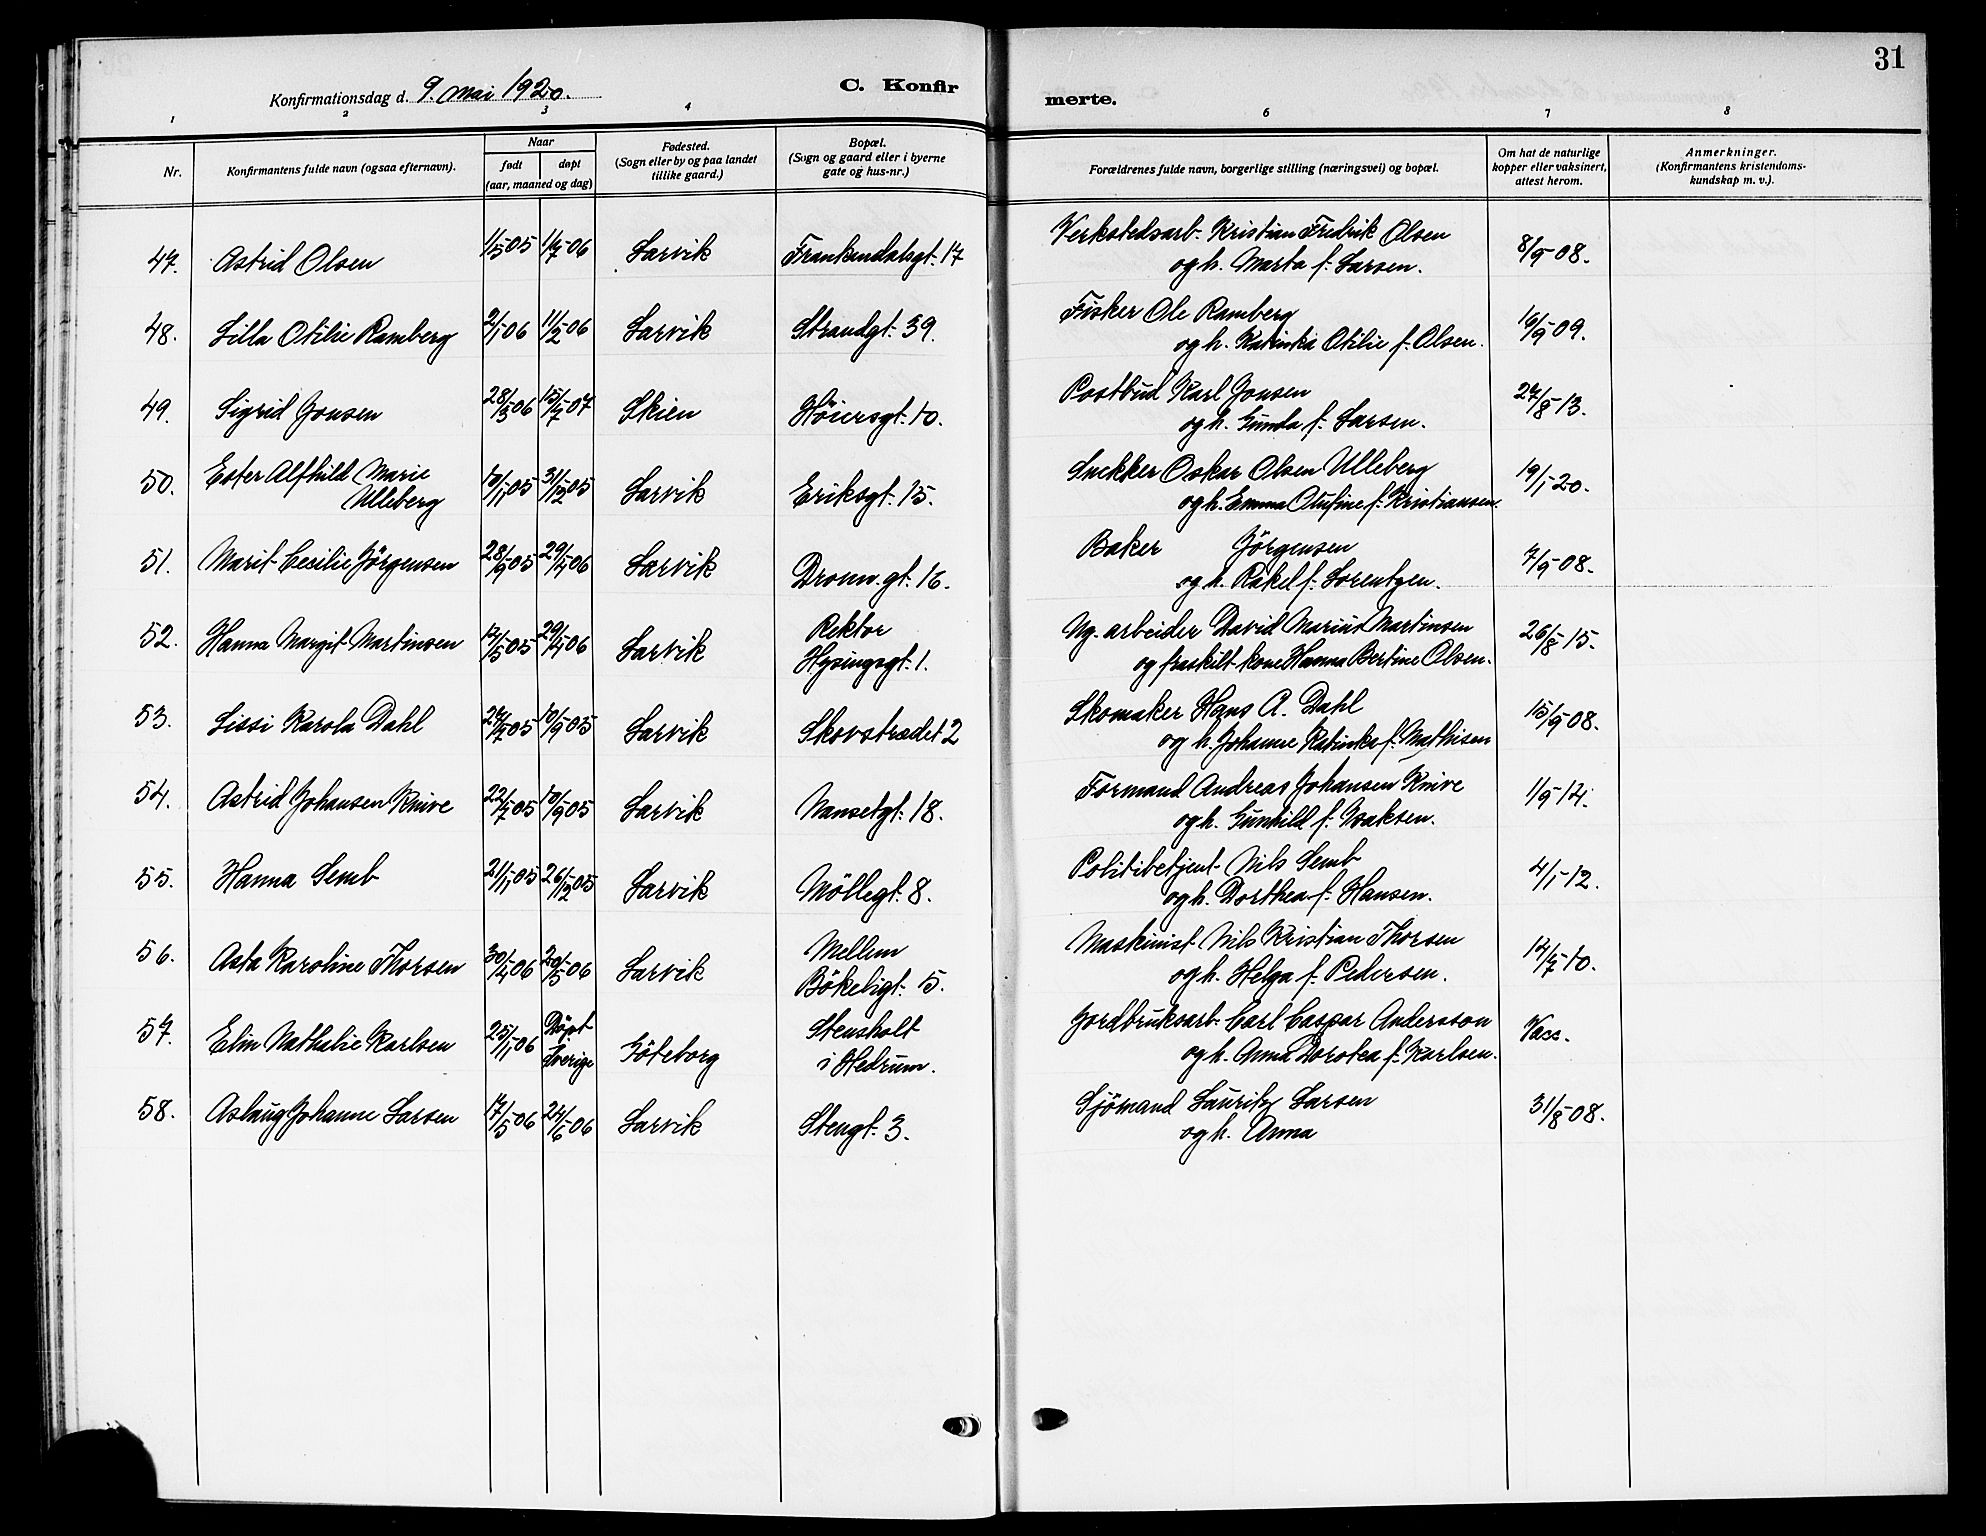 31
Konfirmationsdag d. 9. mai 1920.
C. Konfir
merte.
1 2 3 4 6 7 8
Nr.
Konfirmantens fulde navn (ogsaa efternavn).
Naar
født døpt
(aar, maaned og dag)
Fødested.
(Sogn eller by og paa landet
tillike gaard.)
Bopæl.
(Sogn og gaard eller i byerne
gate og hus-nr.)
Forældrenes fulde navn, borgerlige stilling (næringsvei) og bopæl.
Om hat de naturlige
kopper eller vaksinert,
attest herom.
Anmerkninger.
(Konfirmantens kristendoms-
kundskap m. v.).
47. Astrid Olsen 1/5-05 1/7-06 Larvik Frankendalsgt. 17 Verkstedsarb. Kristian Fredrik Olsen 8/9-08.
og h. Marta f. Larsen.
48. Lilla Otilie Ramberg 2/1-06 11/2-06 Larvik Strandgt. 39. Fisker Ole Ramberg 16/9-09.
og h. Katinka Otilie f. Olsen.
49. Sigrid Jonsen 28/3-06 15/7-07 Skien Höiersgt. 10. Postbud Karl Jonsen 27/8-13.
og h. Gunda f. Larsen.
50. Ester Alfhild Marie 10/11-05 31/12-05 Larvik Eriksgt. 15. Snekker Oskar Olsen Ulleberg 19/1-20.
Ulleberg og h. Emma Olufine f. Kristiansen.
51. Marit Cecilie Jörgensen 28/9-05 29/4-06 Larvik Dronn. gt. 16. Baker Jörgensen 7/9-08.
og h. Rakel f. Lorentzen.
52. Hanna Margit Martinsen 12/5-05 29/4-06 Larvik Rektor Ug. arbeider David Marius Martinsen 26/8-15.
Hysingsgt. 1. og fraskilt kone Hanna Bertine Olsen.
53. Lissi Karola Dahl 24/7-05 10/9-05 Larvik Skovstrædet 2 Skomaker Hans A. Dahl 15/9-08.
og h. Johanne Katinka f. Mathisen
54. Astrid Johansen Knive 22/7-05 10/9-05 Larvik Nansetgt. 18. Formand Andreas Johansen Knive 1/9-14.
og h. Gunhild f. Isaksen.
55. Hanna Semb 21/11-05 26/12-05 Larvik Möllegt. 8. Politibetjent Nils Semb 4/1-12.
og h. Dorthea f. Hansen.
56. Asta Karoline Thorsen 30/4-06 20/5-06 Larvik Mellem Maskinist Nils Kristian Thorsen 12/7-10.
Bökeligt. 5. og h. Helga f. Pedersen.
57. Elin Nathalie Karlsen 25/11-06 Döpt Göteborg Stensholt Jordbruksarb. Carl Caspar Andersson Vacc.
Sverige i Hedrum. og h. Anna Dorotea f. Karlsen.
58. Aslaug Johanne Larsen 17/5-06 24/6-06 Larvik Stengt. 3. Sjömand Lauritz Larsen 31/8-08.
og h. Anna